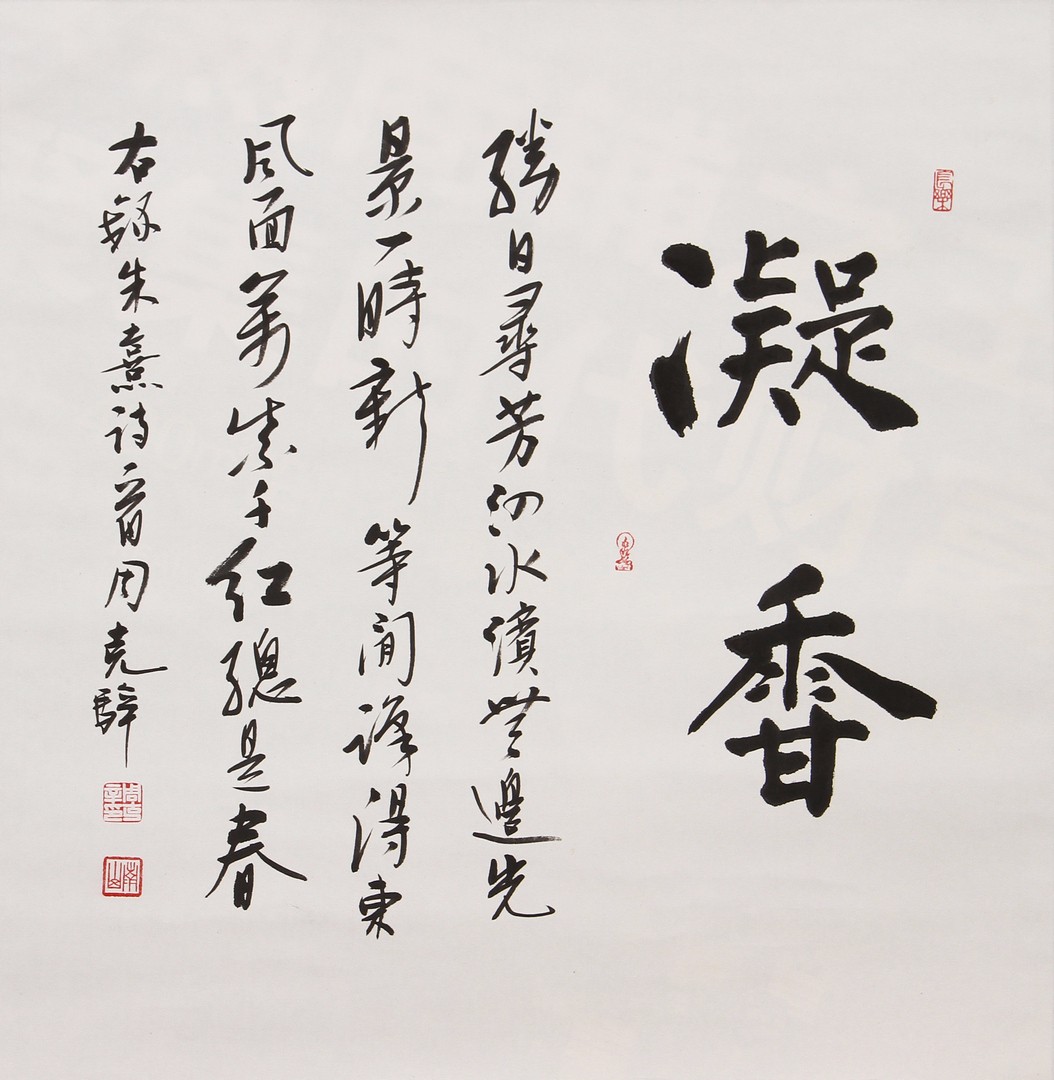 凝香
勝日尋芳泗水濱無邊光
景一時新等閒識得東
風面萬紫千紅總是春
右録朱熹詩一首周克騂
南山